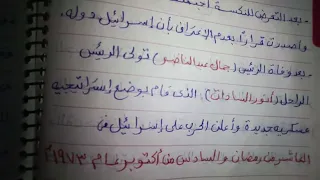 - بعد التعرض للنكسة
وأصدرت قرارًا بعدم الإعتراف بأن إسرائيل دولة.
- بعد وفاة الرئيس (جمال عبد الناصر) تولى الرئيس
الراحل (أنور السادات)، الذى قام بوضع إستراتيجية
عسكرية جديدة وأعلن الحرب على إسرائيل فى
العاشر من رمضان والسادس من أكتوبر عام ١٩٧٣م